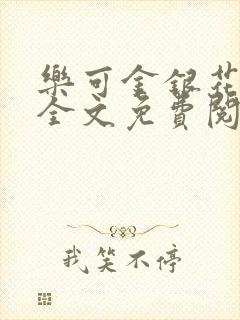 樂可金銀花
全文免費閱
我笑不停